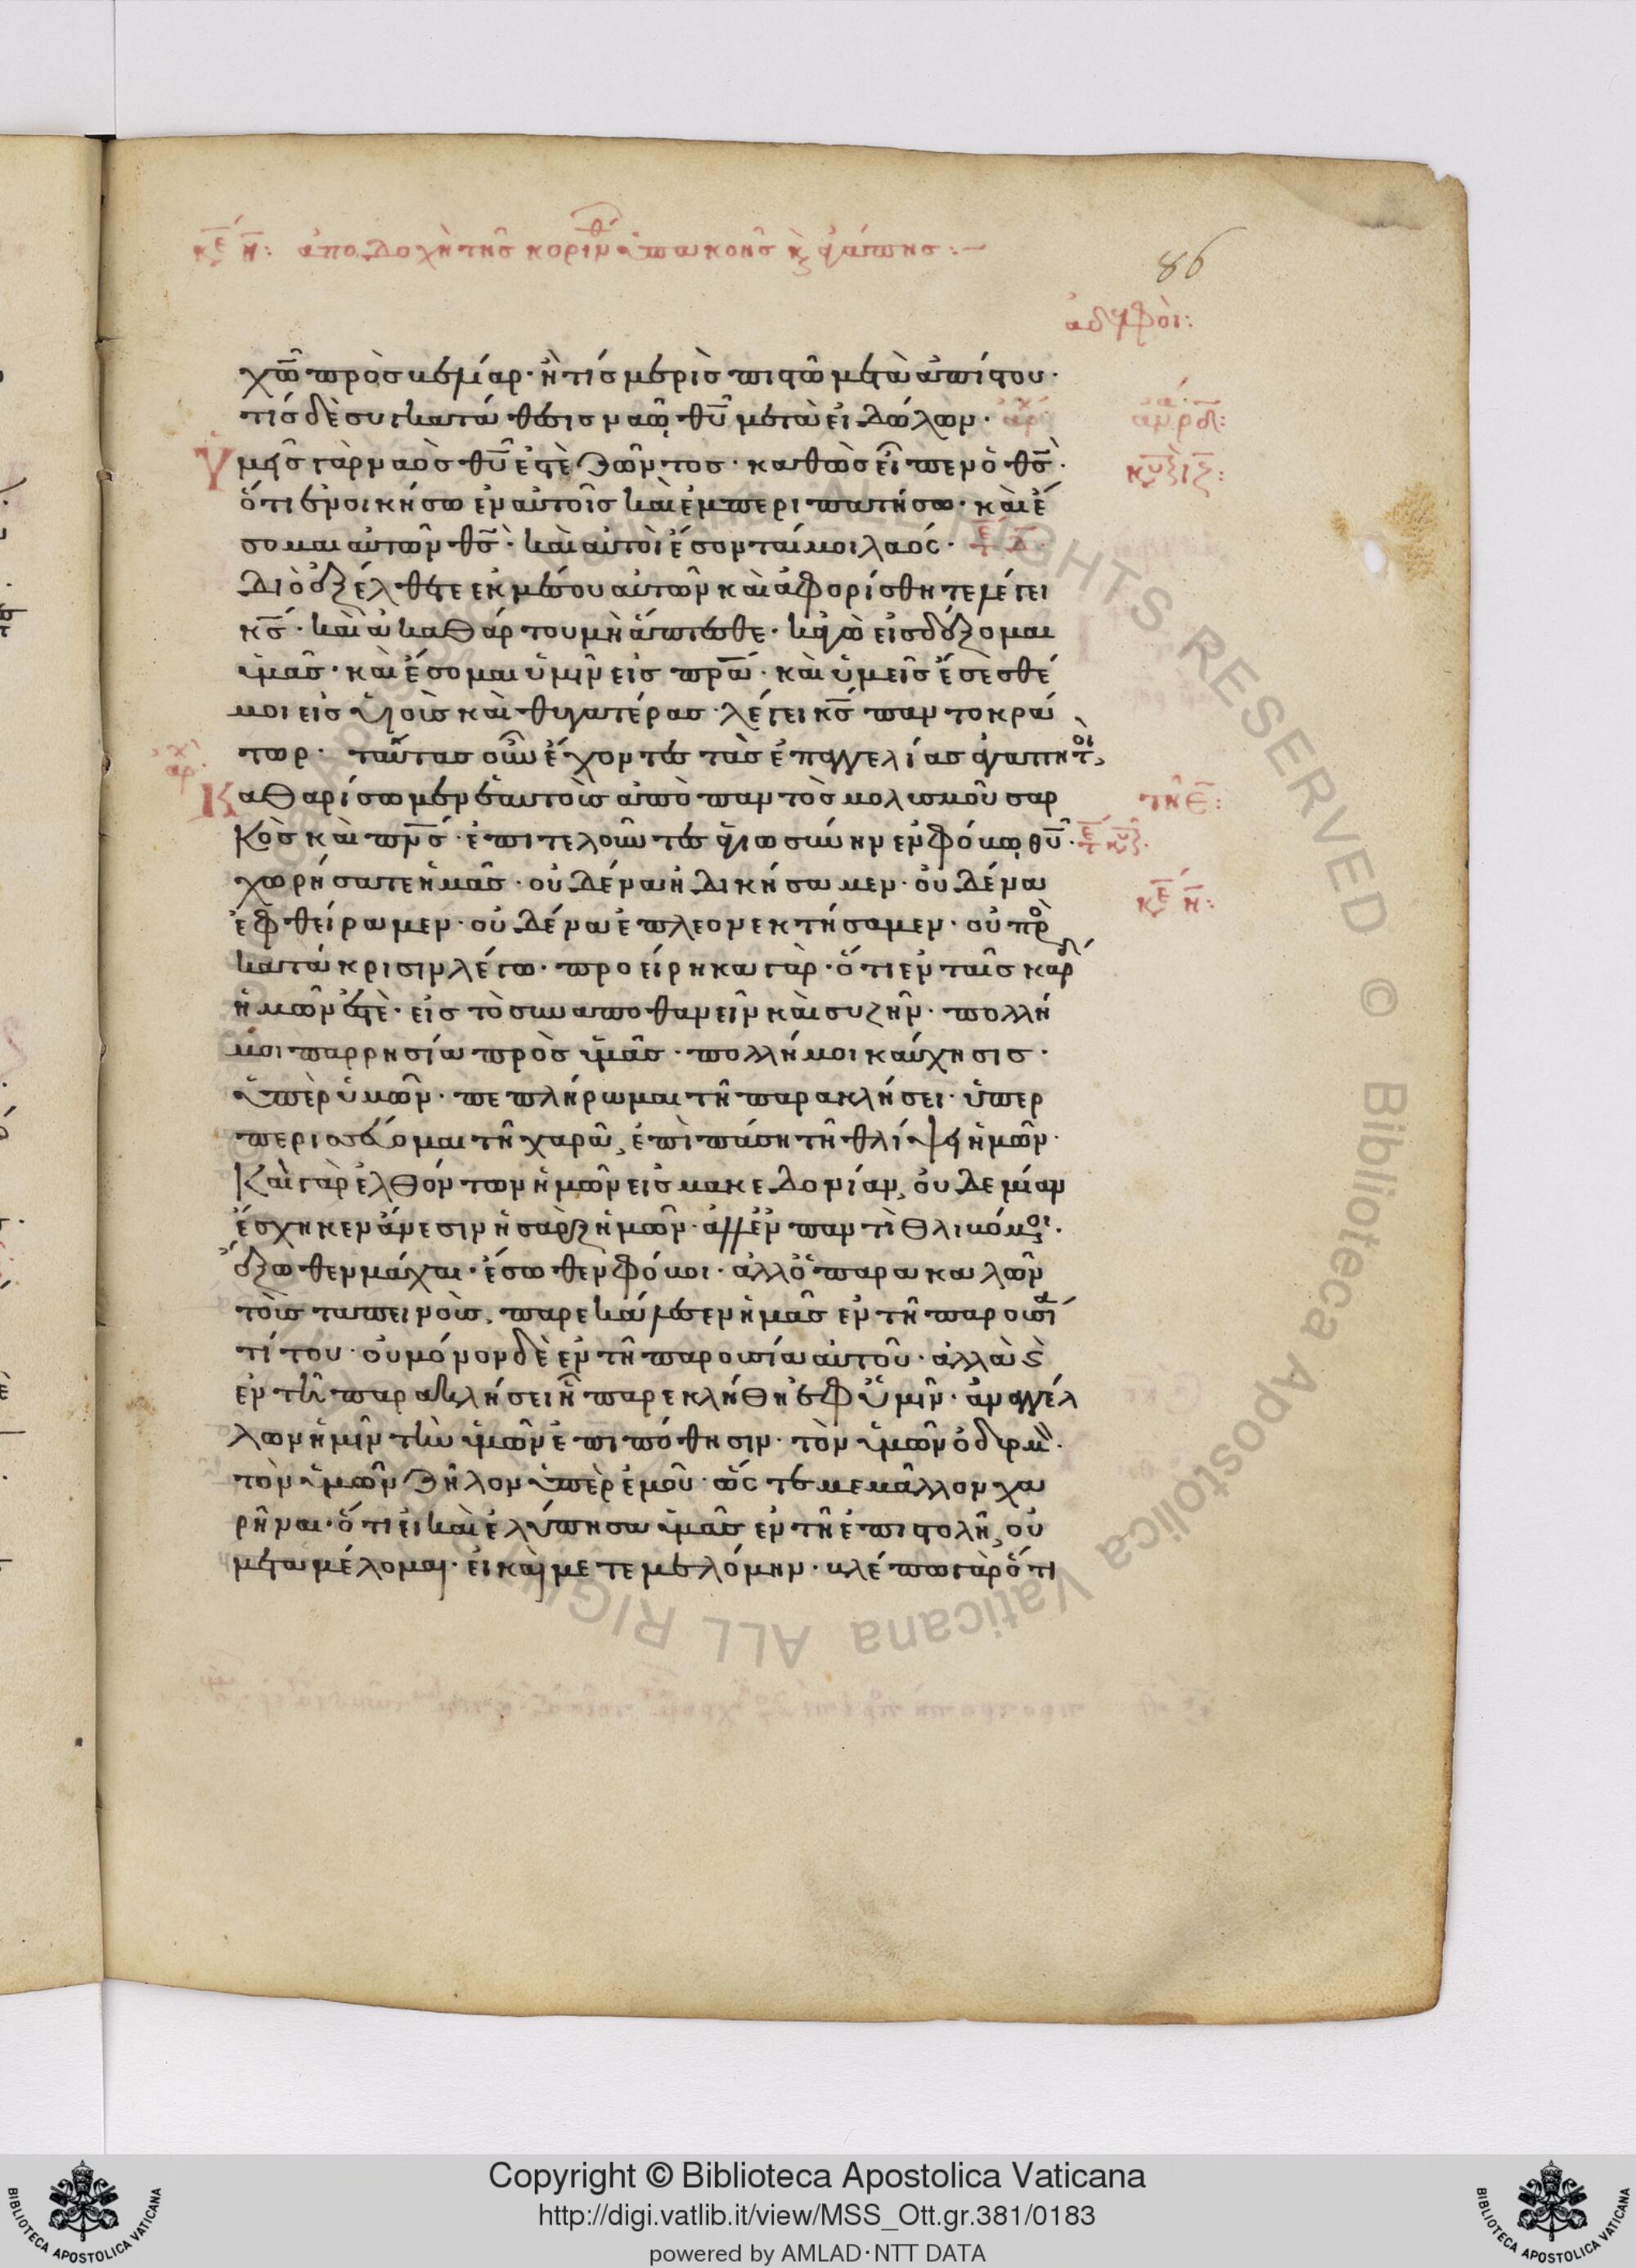 κε̅ η̅: ἀποδοχὴ τῆς κορινθ ὑπακοῆς κ ἀγάπης:—
86
ἀδελφοὶ:
χω̅ πρὸς βελίαρ· ἢ τίς μερὶς πιστῶ μετὰ ἀπίστου·
τίς δὲ συγκατάθεσις ναῶ θυ̅ μετὰ εἰδώλων·
Ὑμεῖς γὰρ ναὸς θυ̅ ἐστὲ ζῶντος· καθὼς εἶπεν ὁ θς̅·
ὅτι ἐνοικήσω ἐν αὐτοῖς καὶ ἐμπεριπατήσω· καὶ ἔ
σομαι αὐτῶν θς̅· καὶ αὐτοὶ ἔσονταί μοι λαός·
Διὸ ἐξέλθετε ἐκ μέσου αὐτῶν καὶ ἀφορίσθητε λέγει
κς̅· καὶ ἀκαθάρτου μὴ ἅπτεσθε· κἀγὼ εἰσδέξομαι
ὑμᾶς· καὶ ἔσομαι ὑμῖν εἰς πρα̅· καὶ ὑμεῖς ἔσεσθέ
μοι εἰς υἱοὺς καὶ θυγατέρας· λέγει κς̅ παντοκρά
τωρ· ταύτας οὖν ἔχοντες τὰς ἐπαγγελίας ἀγαπητοὶ,
Καθαρίσωμεν ἑαυτοὺς ἀπὸ παντὸς μολυσμοῦ σαρ
κὸς καὶ πνς̅· ἐπιτελοῦντες ἁγιωσύνην ἐν φόβω θυ̅·
χωρήσατε ἡμᾶς· οὐδένα ἠδικήσαμεν· οὐδένα
ἐφθείραμεν· οὐδένα ἐπλεονεκτήσαμεν· οὐ πρὸ
κατάκρισιν λέγω· προείρηκα γὰρ· ὅτι ἐν ταῖς καρδί
ἡμῶν ἐστὲ· εἰς τὸ συναποθανεῖν καὶ συζῆν· πολλή
μοι παρρησία πρὸς ὑμᾶς· πολλή μοι καύχησις·
ὑπὲρ ὑμῶν· πεπλήρωμαι τῆ παρακλήσει· ὑπερ
περισσεύομαι τῆ χαρᾶ, ἐπὶ πάση τῆ θλίψει ἡμῶν·
Καὶ γὰρ ἐλθόντων ἡμῶν εἰς μακεδονίαν, οὐδεμίαν
ἔσχηκεν ἄνεσιν ἡ σὰρξ ἡμῶν· ἀλλ' ἐν παντὶ θλιβόμενοι·
ἔξωθεν μάχαι· ἔσωθεν φόβοι· ἀλλ' ὁ παρακαλῶν
τοὺς ταπεινοὺς, παρεκάλεσεν ἡμᾶς ἐν τῆ παρουσία
τίτου· οὐ μόνον δὲ ἐν τῆ παρουσία αὐτοῦ· ἀλλὰ κ
ἐν τῆ παρακλήσει ἧ παρεκλήθη ἐφ' ὑμῖν· ἀναγγέλ
λων ἡμῖν τὴν ὑμῶν ἐπιπόθησιν· τὸν ὑμῶν ὀδυρμὸ·
τὸν ὑμῶν ζῆλον ὑπὲρ ἐμοῦ· ὥστε με μᾶλλον χα
ρῆναι· ὅτι εἰ καὶ ἐλύπησα ὑμᾶς ἐν τῆ ἐπιστολῆ, οὐ
μεταμέλομαι· εἰ καὶ μετεμελόμην· βλέπω γὰρ ὅτι
τη ε̅:
κε̅ η̅:
Copyright © Biblioteca Apostolica Vaticana
http://digi.vatlib.it/view/MSS_Ott.gr.381/0183
powered by AMLAD·NTT DATA
BIBLIOTECA APOSTOLICA VATICANA
BIBLIOTECA APOSTOLICA VATICANA